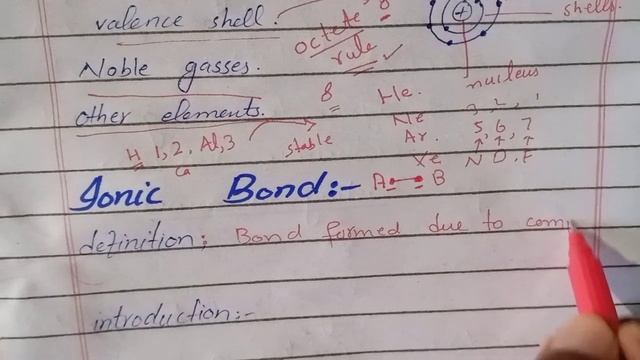 valence shell.
octete 8
rule
shells.
Noble gasses.
nucleus
8
He.
3, 2, 1
other elements.
Ne
5, 6, 7
H 1, 2, Al, 3
Ca
stable
Ar.
Xe
N O, F
Ionic Bond:- A B
definition; Bond formed due to com
introduction:-